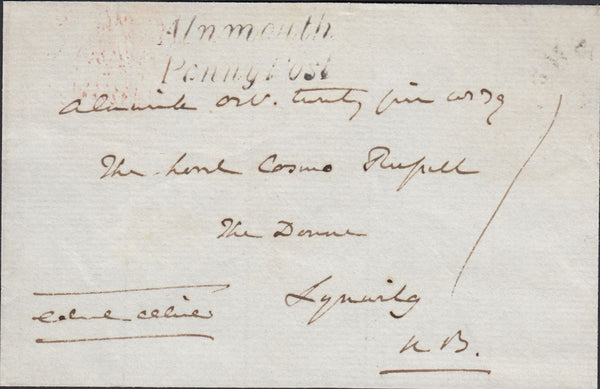 Alnmouth
Penny Post
Alnwick Oct. twenty five 1839
The Lord Cosmo Russell
The Doune
Lynwilg
N.B.